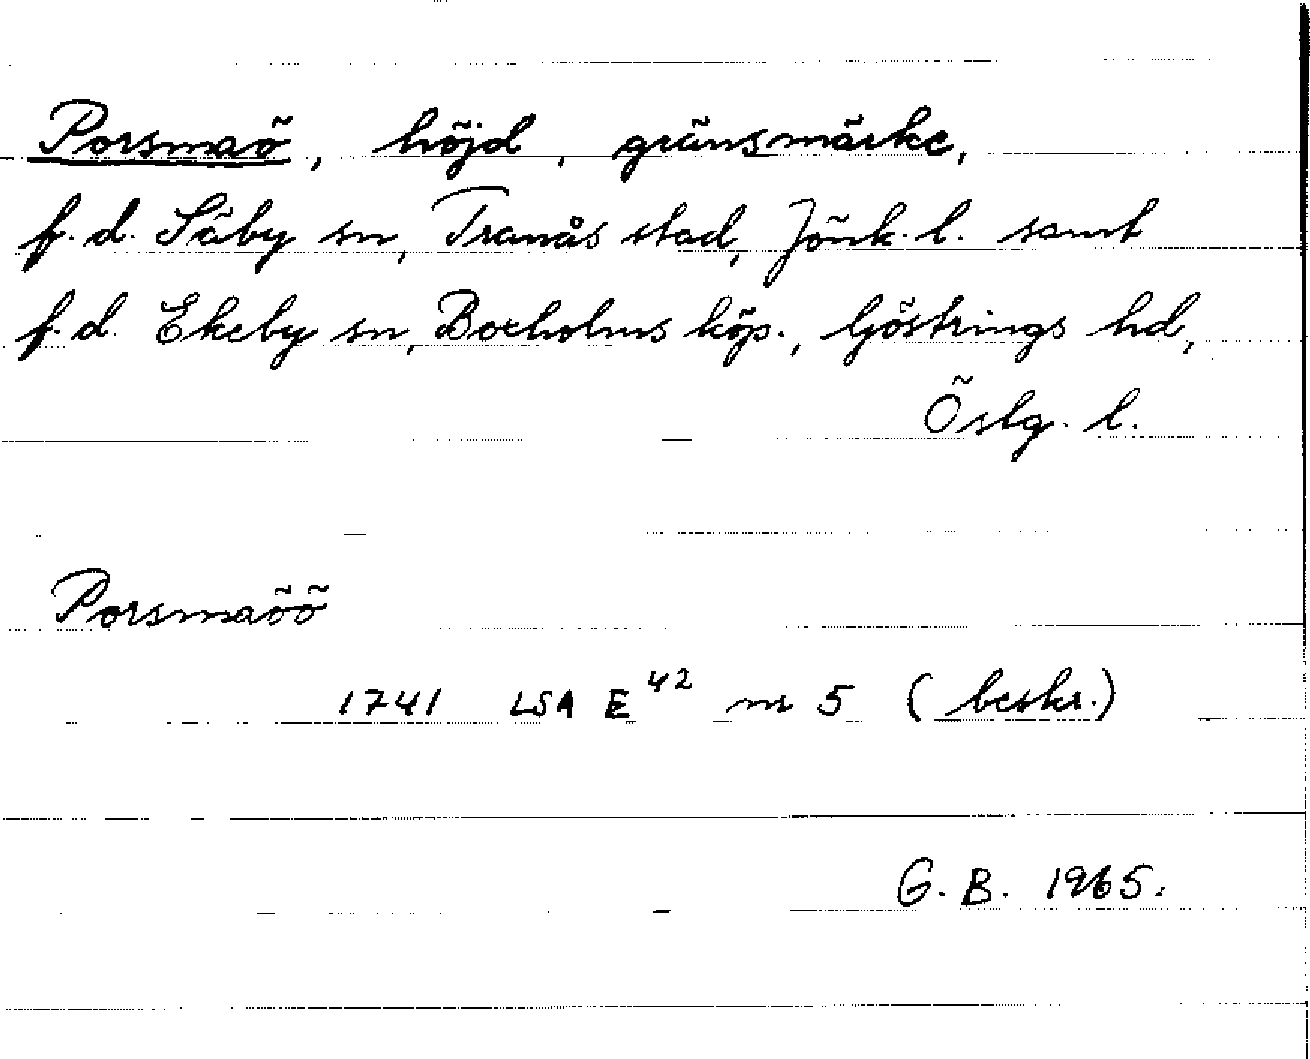 Porsmaö, höjd, gränsmärke,
f.d. Säby sn, Tranås stad, Jönk. l. samt
f.d. Ekeby sn, Boxholms köp., Göstrings hd,
Östg. l.
Porsmaöö
1741 LSA E42 nr 5 (beskr.)
G. B. 1965.